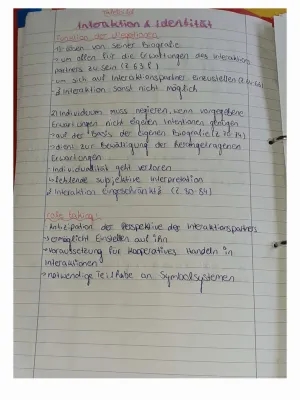 Interaktion & Identität
1) lösen von seiner Biografie
um allen für die Erwartungen des Interaktions
partners zu sein
um sich auf Interaktionspartner einzustellen
Interaktion sonst nicht möglich
2) Individuum muss negieren, wenn vorgegebene
Erwartungen nicht eigenen Intentionen genügen
→ auf der Basis der eigenen Biografie
→ dient zur Bewältigung der herangetragenen
Erwartungen
Individualität geht verloren
fehlende subjektive Interpretation
Interaktion eingeschränkt (Z. 30-84)
Role taking:
Antizipation der Perspektive des Interaktionspartners
→ ermöglicht Einstellen auf ihn
→ Voraussetzung für kooperatives Handeln in
Interaktionen
→ notwendige Teilhabe an Symbolsystemen